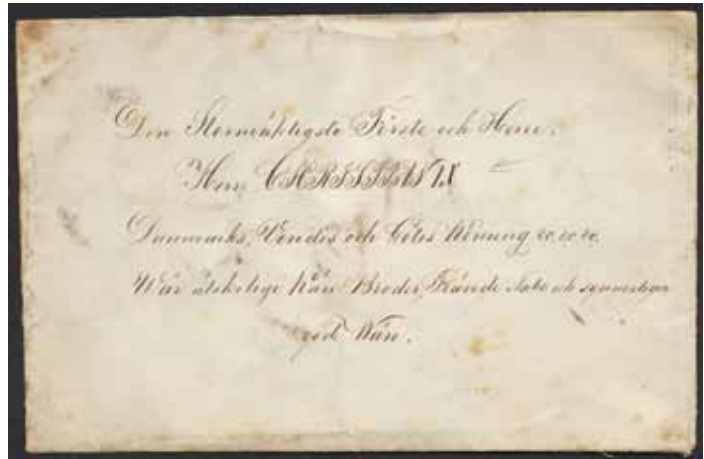 Den Stormäktigste Förste och Herre,
Herr CHRISTIAN IX
Danmarks, Vendes och Götes Konung &c. &c. &c.
Wår älskelige Käre Broder, Frände Nabo och synnerligen
gode Wän.